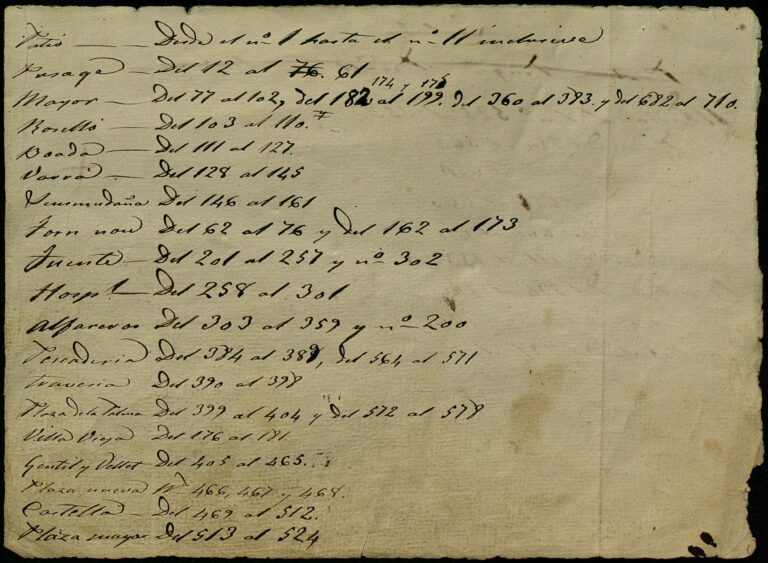 Patio — Desde el nº 1 hasta el nº 11 inclusive
Pasage — Del 12 al 76. 61
174 y 175
Mayor — Del 77 al 102, del 182 al 199. del 360 al 383. y del 682 al 710.
Roselló — Del 103 al 110.
Boada — Del 111 al 127.
Varrá — Del 128 al 145
Del 146 al 161
Forn nou — Del 62 al 76 y del 162 al 173
Fuente — Del 201 al 257 y nº 302
Hospl — Del 258 al 301
Alfareros Del 303 al 359 y nº 200
Pescaderia Del 384 al 389, del 564 al 571
Travesia Del 390 al 398
Plaza de la Del 399 al 404 y del 572 al 578
Villa Vieja Del 176 al 181
Gentil y Vellet Del 405 al 465.
Plaza nueva Nº 466, 467 y 468.
Castella — Del 469 al 512.
Plaza mayor Del 513 al 524